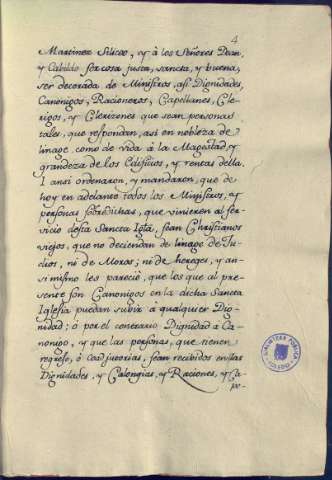 4
Martinez Siliceo, y à los Señores Dean,
y Cabildo ser cosa justa, sancta, y buena,
ser decorada de Ministros, asi Dignidades,
Canonigos, Racioneros, Capellanes, Cle-
rigos, y Clerizones que sean personas
tales, que respondan, asi en nobleza de
linage, como de vida à la Magestad, y
grandeza de los Edificios, y rentas della.
I ansi ordenaron, y mandaron, que de
hoy en adelante todos los Ministros, y
personas sobredichas, que vinieren al ser-
vicio desta Sancta Igtã, sean Christianos
viejos, que no deciendan de linage de Ju-
dios, ni de Moros; ni de hereges, y an-
simismo les pareció, que los que al pre-
sente son Canonigos en la dicha Sancta
Iglesia puedan subir à qualquier Dig-
nidad; ò por el contrario Dignidad à Ca-
nonigo, y que las personas, que tienen
regreso, ò coadjutorias, sean recibidos en las
Dignidades, y Calongias, y Raciones, y Ca-
pe-
BIBLIOTECA PUBLICA
TOLEDO